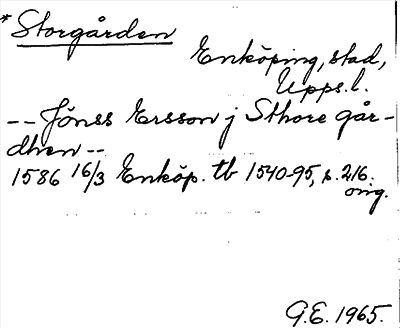 * Storgården
Enköping, stad,
Upps. l.
-- Jönss Ersson j Sthore går-
dhen --
1586 16/3 Enköp. tb 1540-95, s. 216.
orig.
G.E. 1965.